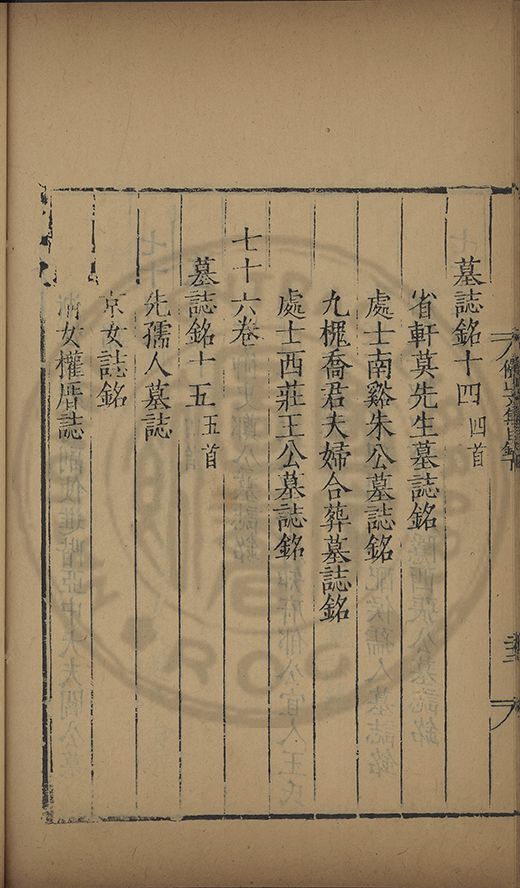 墓誌銘十四 四首
省軒莫先生墓誌銘
處士南谿朱公墓誌銘
九櫷喬君夫婦合葬墓誌銘
處士西莊王公墓誌銘
七十六卷
墓誌銘十五 五首
先孺人墓誌
京女誌銘
女權厝誌